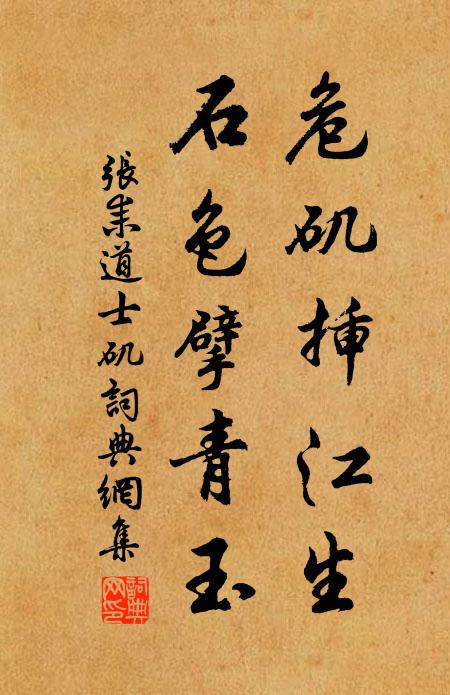 危矶插江生
石色擘青玉
張耒道士矶詞典網集
詞典网印